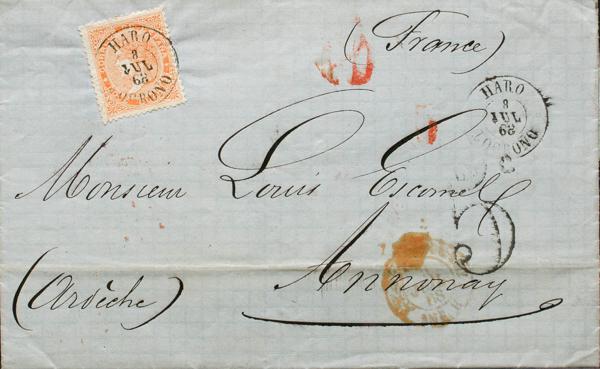 HARO
8
JUL
68
LOGROÑO
(France)
HARO
8
JUL
68
LOGROÑO
Monsieur Louis Escomel
5
Annonay
(Ardèche)